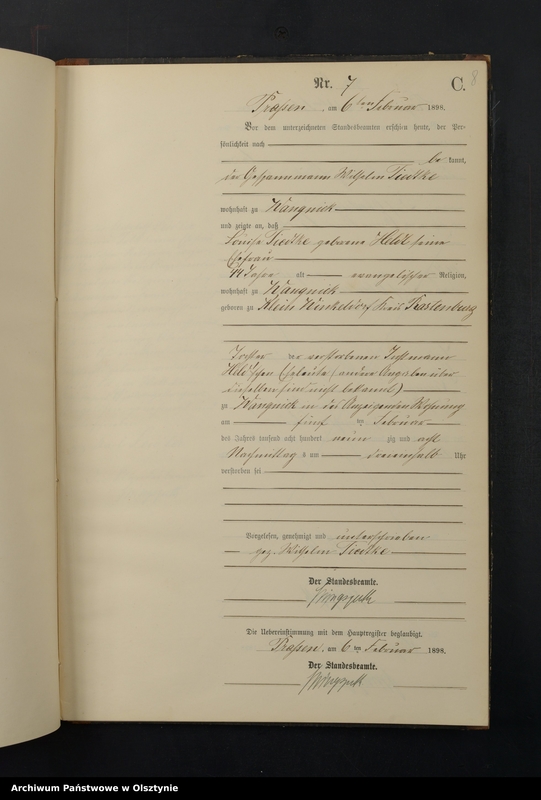 Nr. 7 C. 8
Praßen, am 6ten Februar 1898.
Vor dem unterzeichneten Standesbeamten erschien heute, der Per-
sönlichkeit nach
be kannt,
der Gespannmann Wilhelm Tiedtke
wohnhaft zu Wangnick
und zeigte an, daß
Louise Tiedtke geborene Held seine
Ehefrau
44 Jahre alt evangelischer Religion,
wohnhaft zu Wangnick
geboren zu Klein Winkeldorf Kreis Rastenburg
Tochter der verstorbenen Instmann
Held'schen Eheleute (andere Angaben über
dieselben sind nicht bekannt)
zu Wangnick in des Anzeigenden Wohnung
am fünf ten Februar
des Jahres tausend acht hundert neun zig und acht
Nachmittag s um Uhr
verstorben sei
Vorgelesen, genehmigt und unterschrieben
gez. Wilhelm Tiedtke
Der Standesbeamte.
Die Uebereinstimmung mit dem Hauptregister beglaubigt.
Praßen, am 6 ten Februar 1898.
Der Standesbeamte.
Archiwum Państwowe w Olsztynie